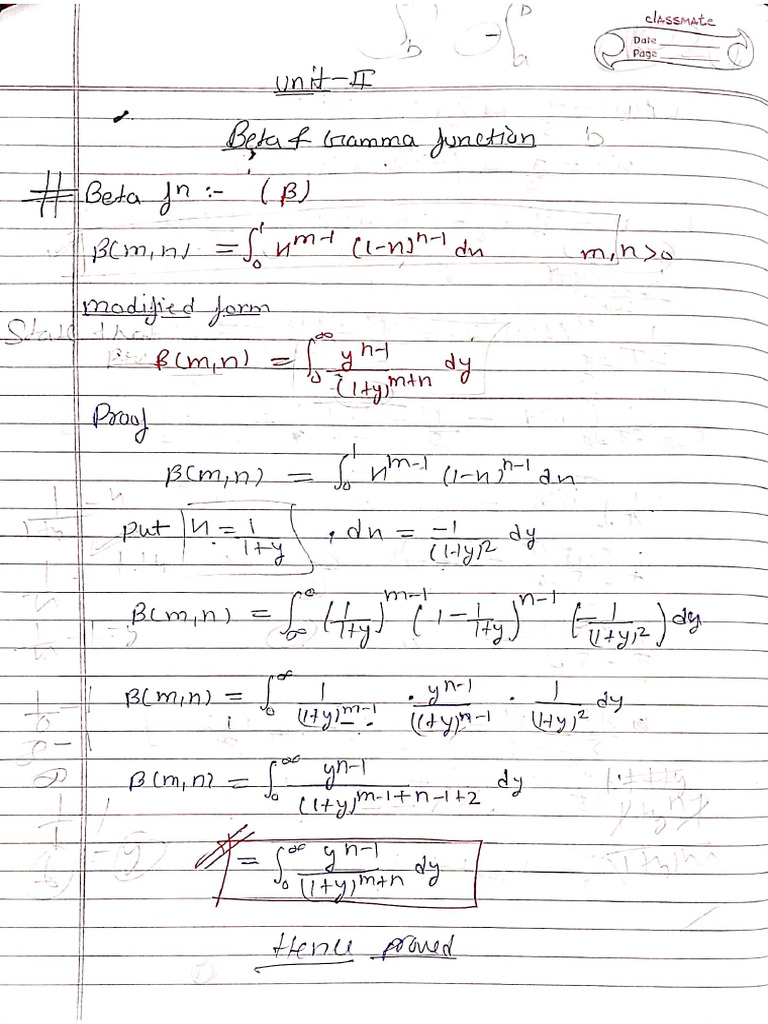 classmate
Date
Page
Unit-II
Beta & Gamma function
# Beta fn :- (β)
β(m,n) = ∫₀¹ x^(m-1) (1-x)^(n-1) dx m,n>0
modified form
β(m,n) = ∫₀^∞ y^(n-1)/(1+y)^(m+n) dy
Proof
β(m,n) = ∫₀¹ x^(m-1) (1-x)^(n-1) dx
put x = 1/(1+y) , dx = -1/(1+y)² dy
β(m,n) = ∫_∞^0 (1/(1+y))^(m-1) (1 - 1/(1+y))^(n-1) (-1/(1+y)²) dy
β(m,n) = ∫₀^∞ 1/(1+y)^(m-1) · y^(n-1)/(1+y)^(n-1) · 1/(1+y)² dy
β(m,n) = ∫₀^∞ y^(n-1)/(1+y)^(m-1+n-1+2) dy
= ∫₀^∞ y^(n-1)/(1+y)^(m+n) dy
Hence proved